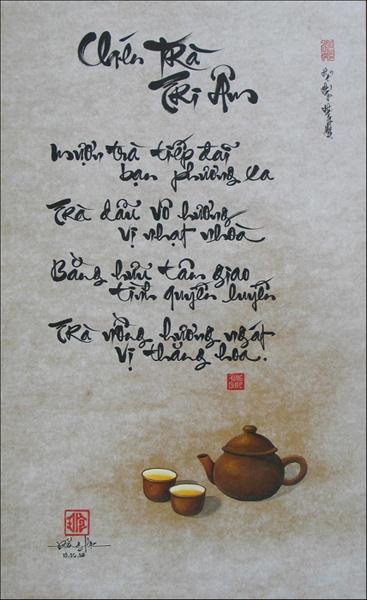 Chén Trà
Tri Âm
Mượn trà tiếp đãi
bạn phương xa
Trà dẫu vô hương
vị nhạt nhoà
Bằng hữu tâm giao
tình quyến luyến
Trà nồng hương ngát
vị thăng hoa.